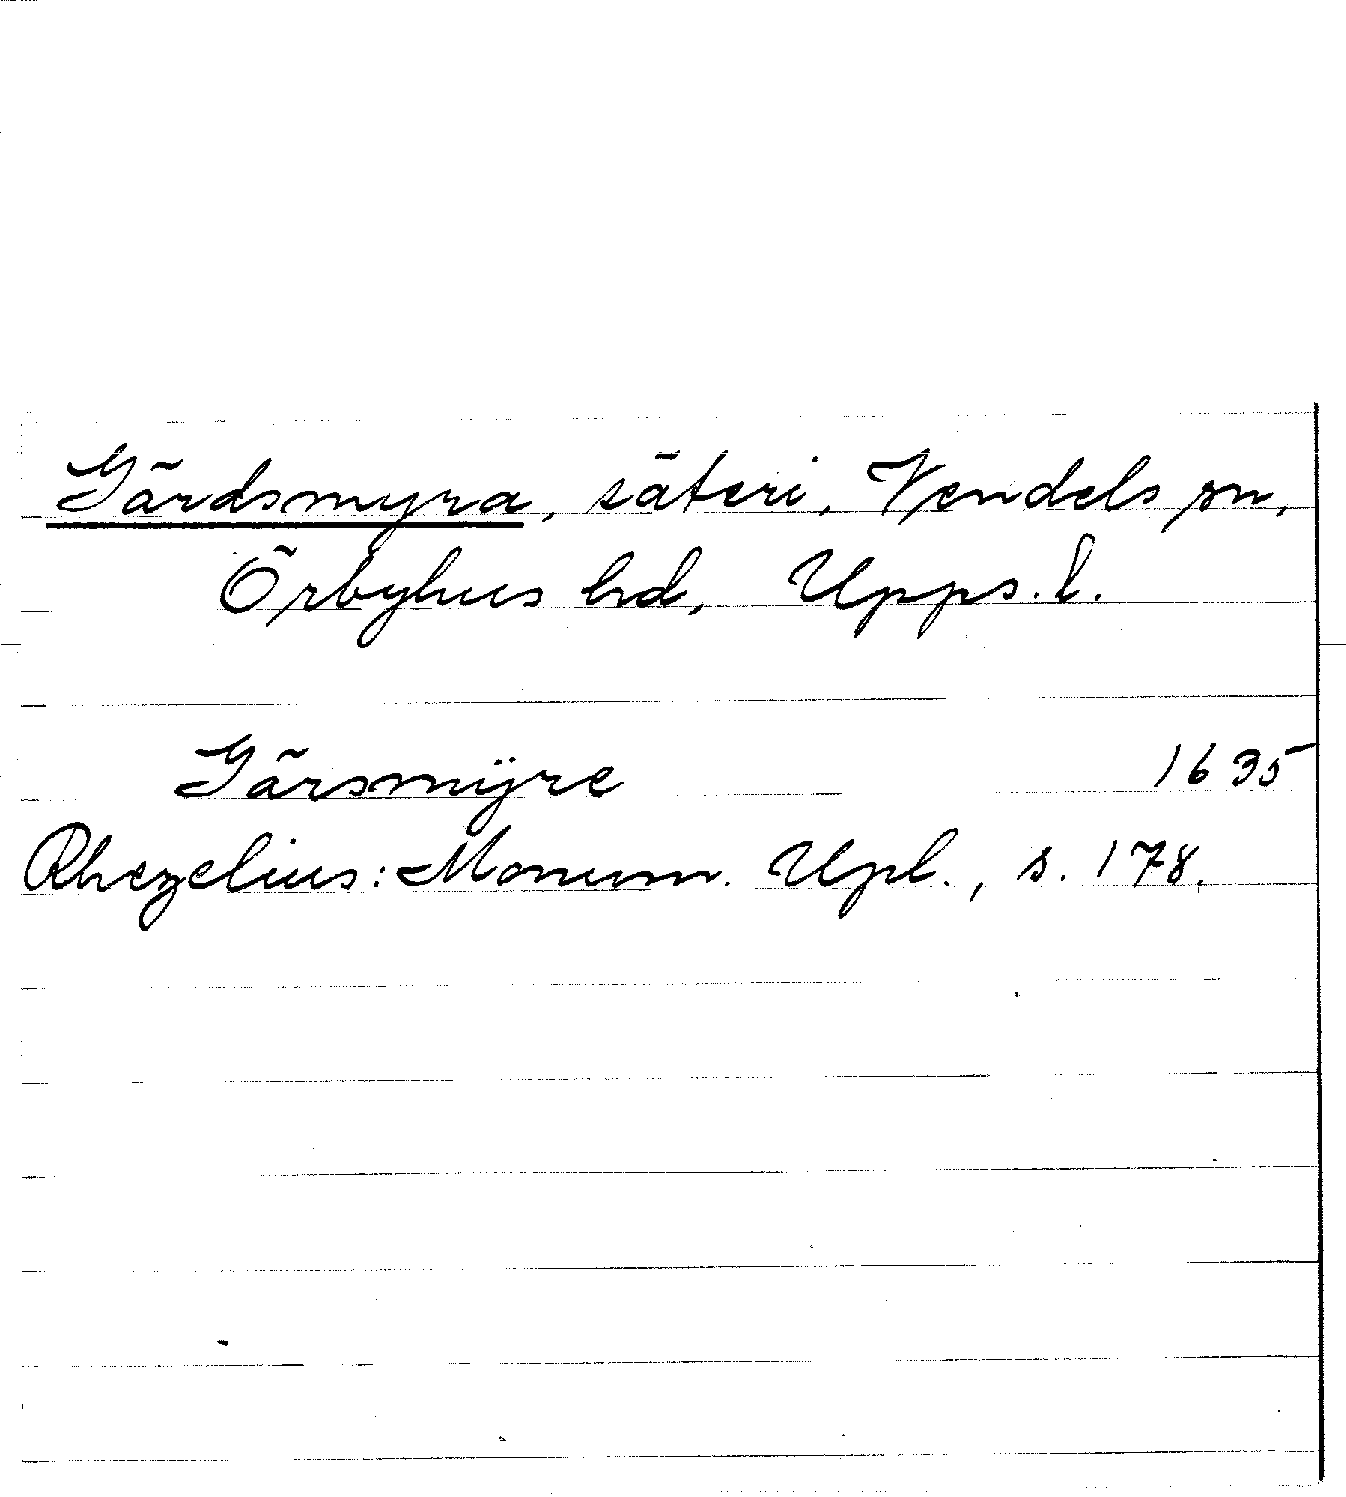 Gärdsmyra, säteri, Vendels sn,
Örbyhus hd, Upps. l.
Gärsmÿre 1635
Rhezelius: Monum. Upl., s. 178.